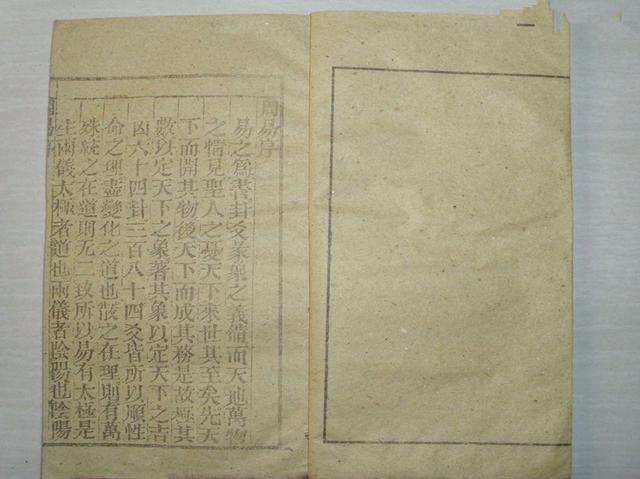 周易序
易之爲書卦爻彖象之義備而天地萬物
之情見聖人之憂天下來世其至矣先天
下而開其物後天下而成其務是故極其
數以定天下之象著其象以定天下之吉
凶六十四卦三百八十四爻皆所以順性
命之理盡變化之道也散之在理則有萬
殊統之在道則无二致所以易有太極是
生兩儀太極者道也兩儀者陰陽也陰陽